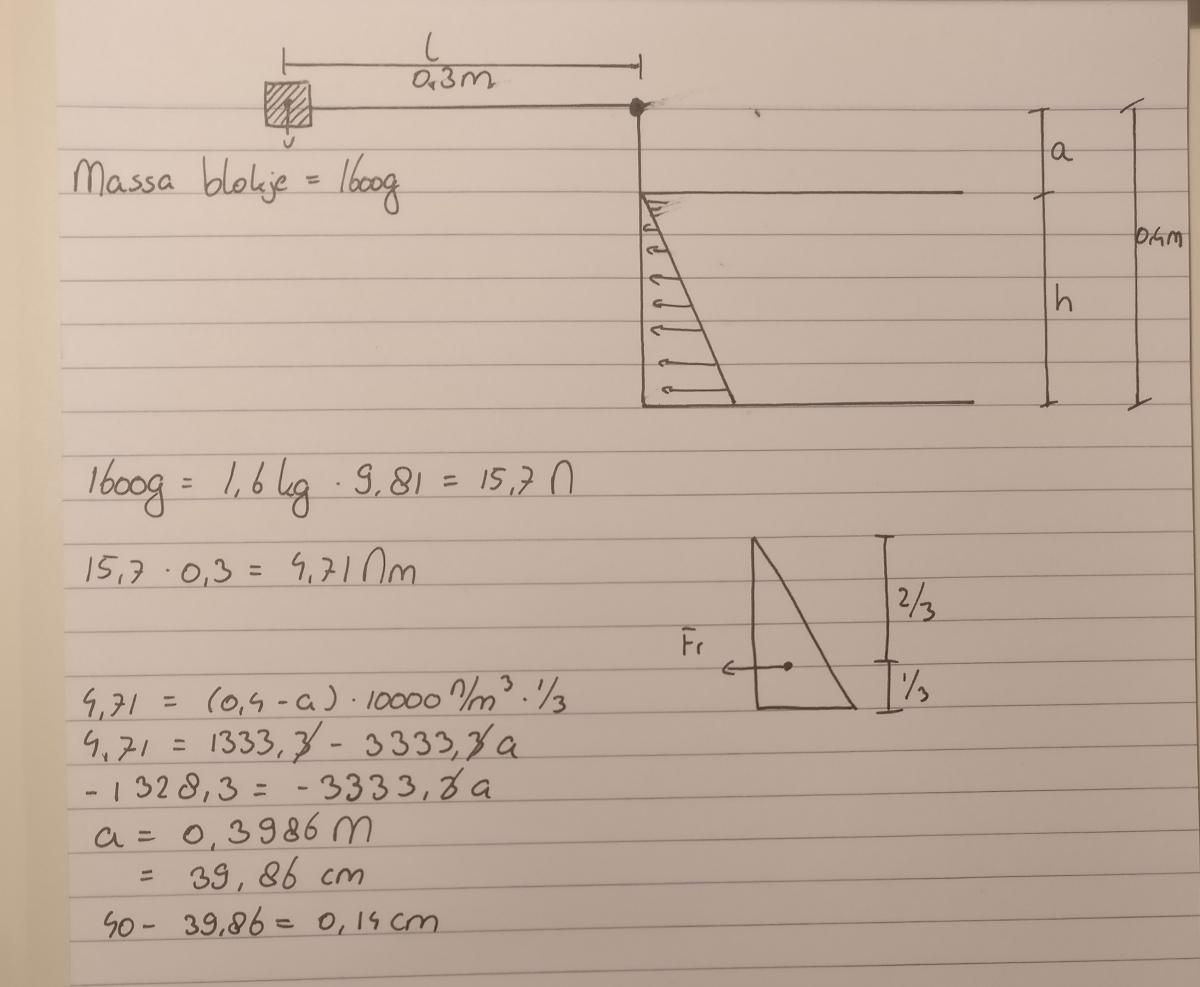 l
0.3m
Massa blokje = 1600g
a
0.4m
h
1600g = 1,6 kg · 9,81 = 15,7 N
15,7 · 0,3 = 4,71 Nm
2/3
Fr
1/3
4,71 = (0,4 - a) · 10000 N/m³ · 1/3
4,71 = 1333,3 - 3333,3 a
-1328,3 = -3333,3 a
a = 0,3986 m
= 39,86 cm
40 - 39,86 = 0,14 cm